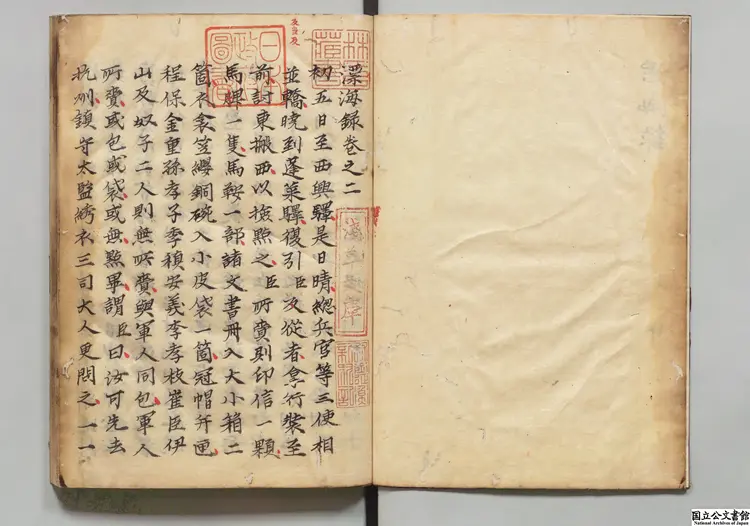 漂海録巻之二
初五日至西興驛是日晴緫兵官等三使相
並轎曉到蓬萊驛復引臣及從者拿行裝至
前討東搬西以撿點之臣所賫則印信一顆
馬牌一隻馬鞍一部諸文書冊入大小箱二
箇衣衾笠纓銅碗入小皮袋一箇冠帽并匣
程保金重孫孝子李楨安義李孝枝崔臣伊
山及奴子二人則無所賫與軍人同包軍人
所賫或包或袋或無點畢謂臣曰汝可先去
杭州鎮守太監綉衣三司大人更問之一一
日本
政府
圖書
国立公文書館
National Archives of Japan